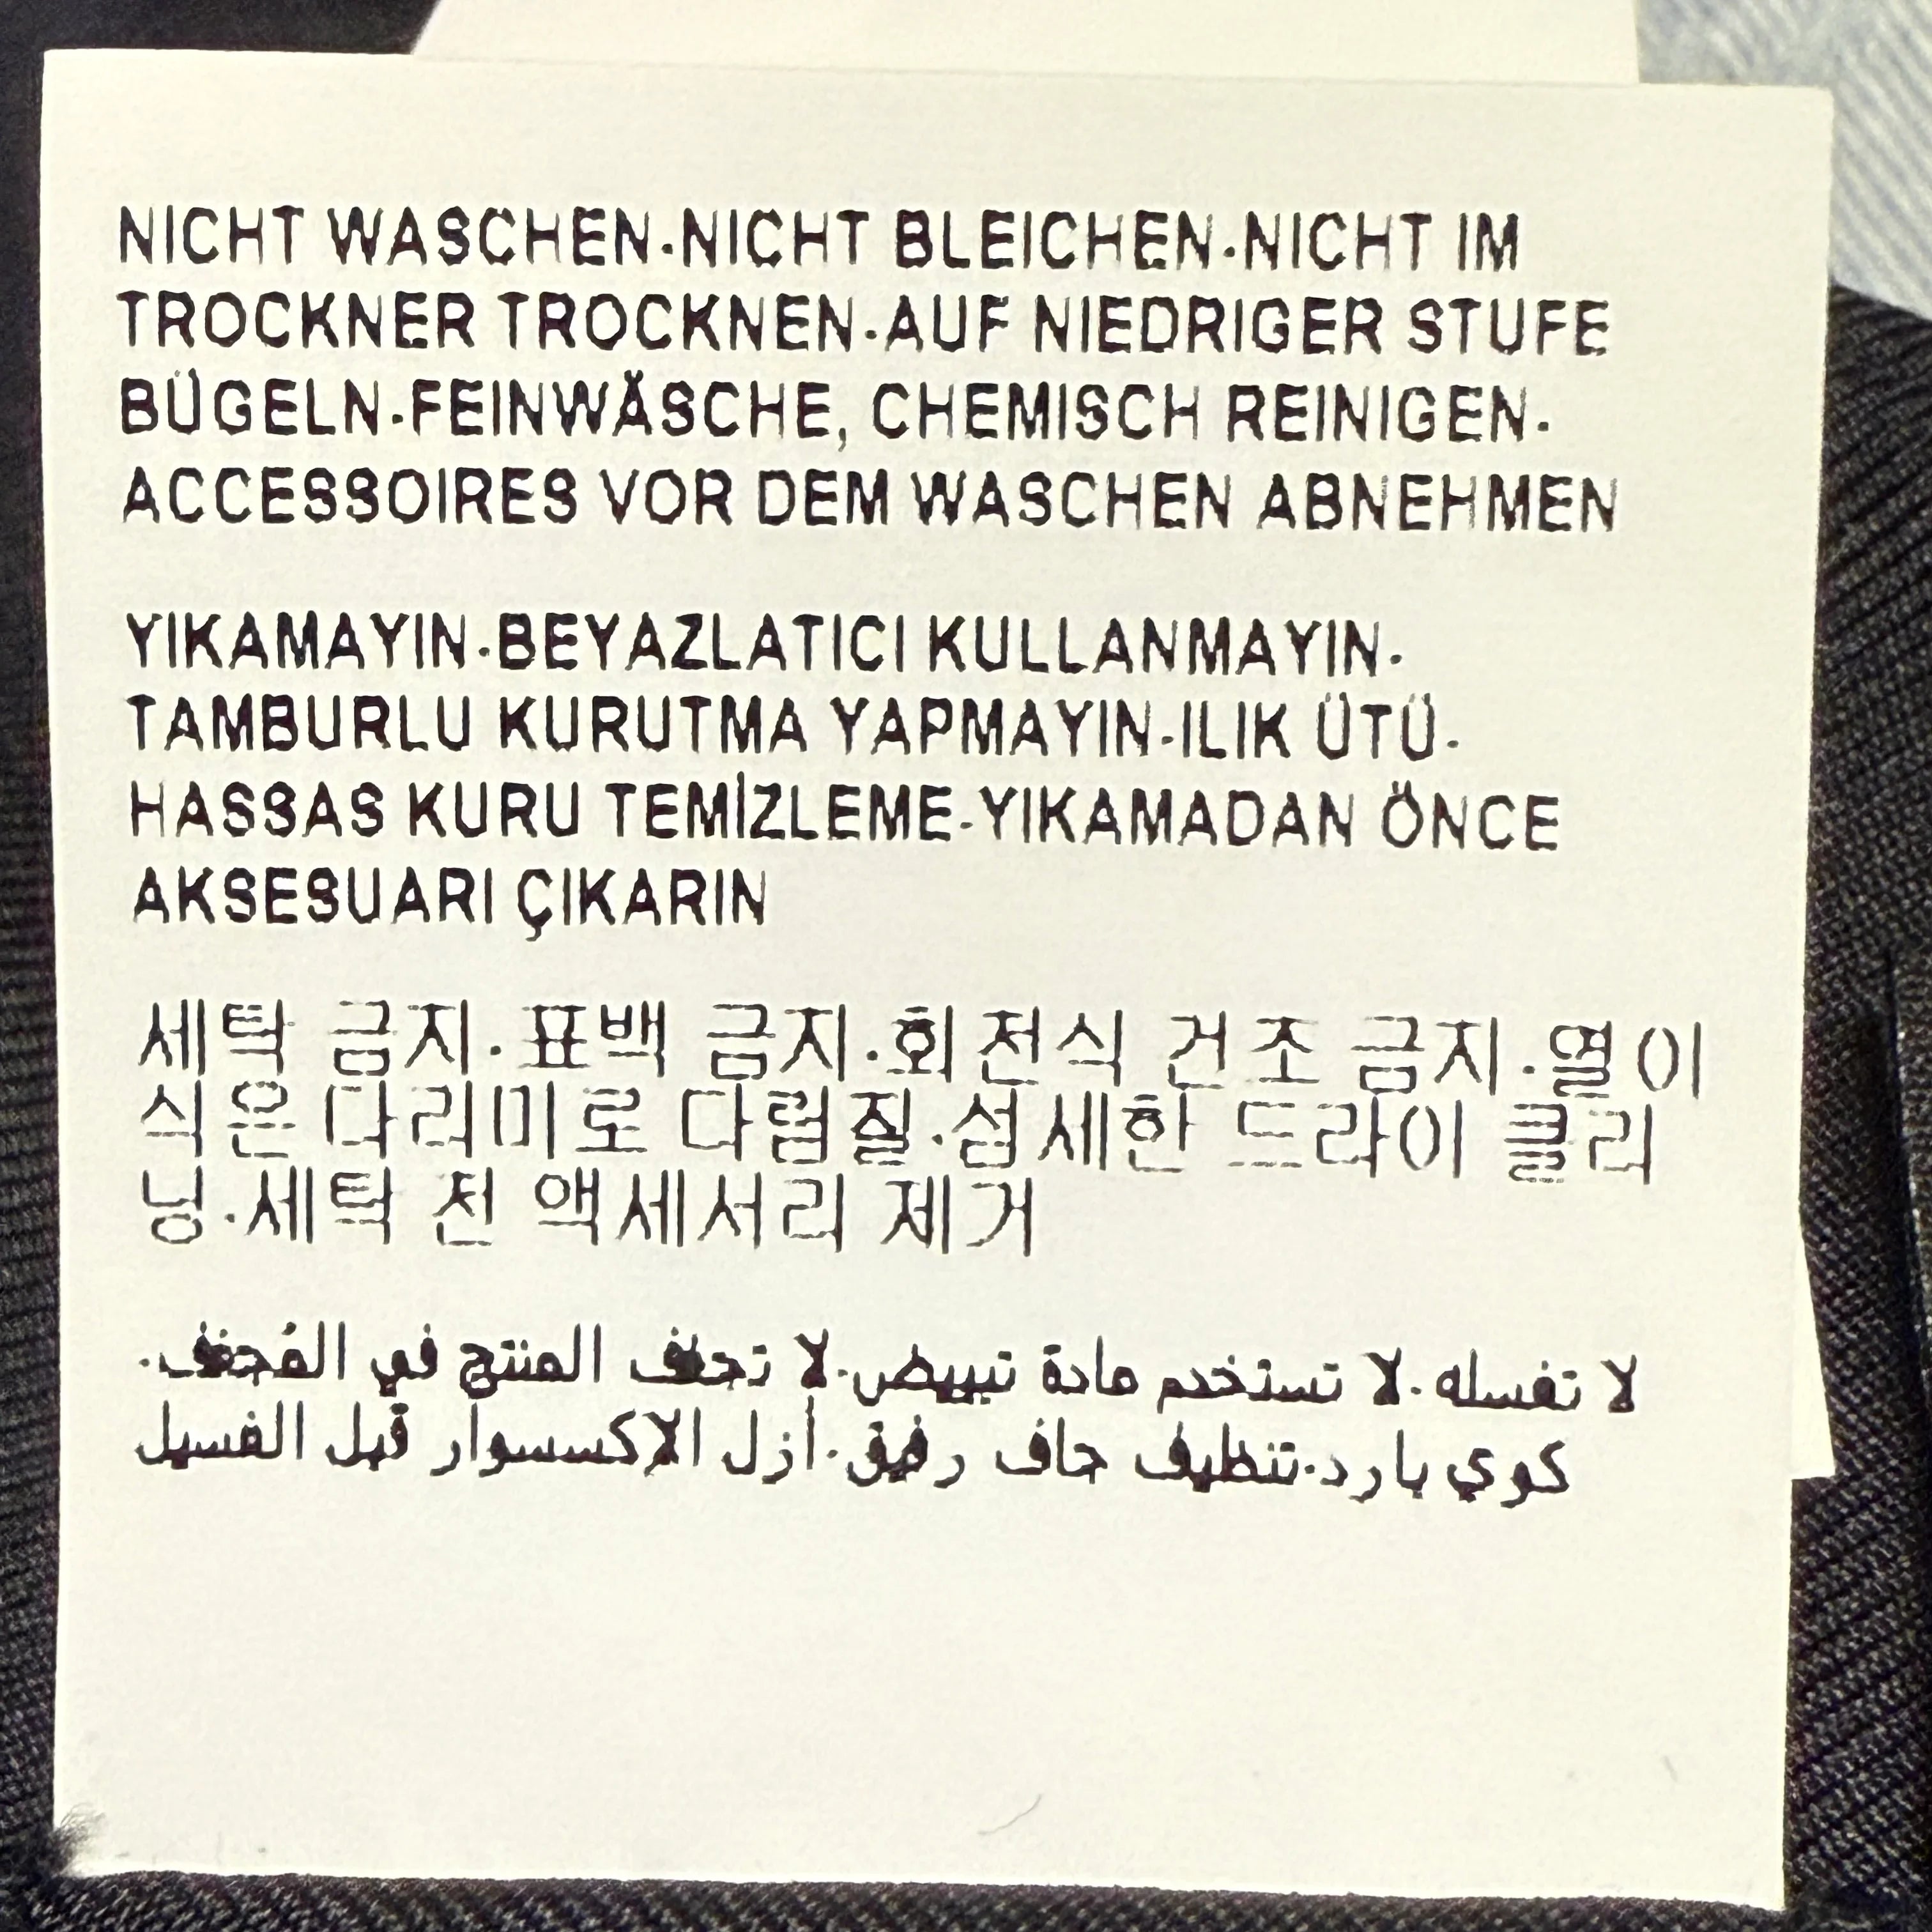 NICHT WASCHEN·NICHT BLEICHEN·NICHT IM
TROCKNER TROCKNEN·AUF NIEDRIGER STUFE
BÜGELN·FEINWÄSCHE, CHEMISCH REINIGEN·
ACCESSOIRES VOR DEM WASCHEN ABNEHMEN
YIKAMAYIN·BEYAZLATICI KULLANMAYIN·
TAMBURLU KURUTMA YAPMAYIN·ILIK ÜTÜ·
HASSAS KURU TEMİZLEME·YIKAMADAN ÖNCE
AKSESUARI ÇIKARIN
세탁 금지·표백 금지·회전식 건조 금지·열이
식은 다리미로 다림질·섬세한 드라이 클리
닝·세탁 전 액세서리 제거
لا تغسله·لا تستخدم مادة تبييض·لا تجفف المنتج في المُجفف·
كوي بارد·تنظيف جاف رفيق·أزل الإكسسوار قبل الغسيل